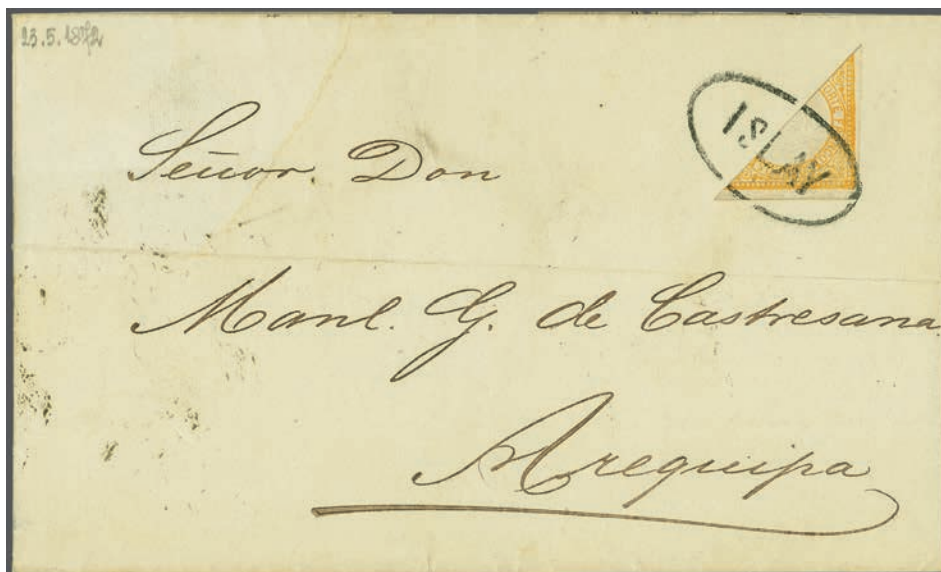 23.5.1872
ISLAY
Señor. Don
Manl. G. de Castresana
Arequipa